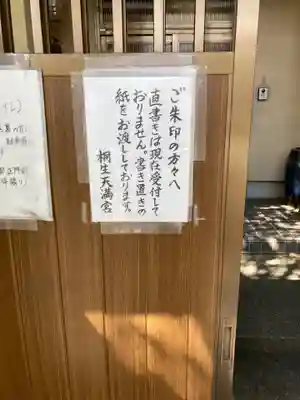 ご朱印の方々へ
直書きは現在受付して
おりません。書き置きの
紙をお渡ししております。
桐生天満宮